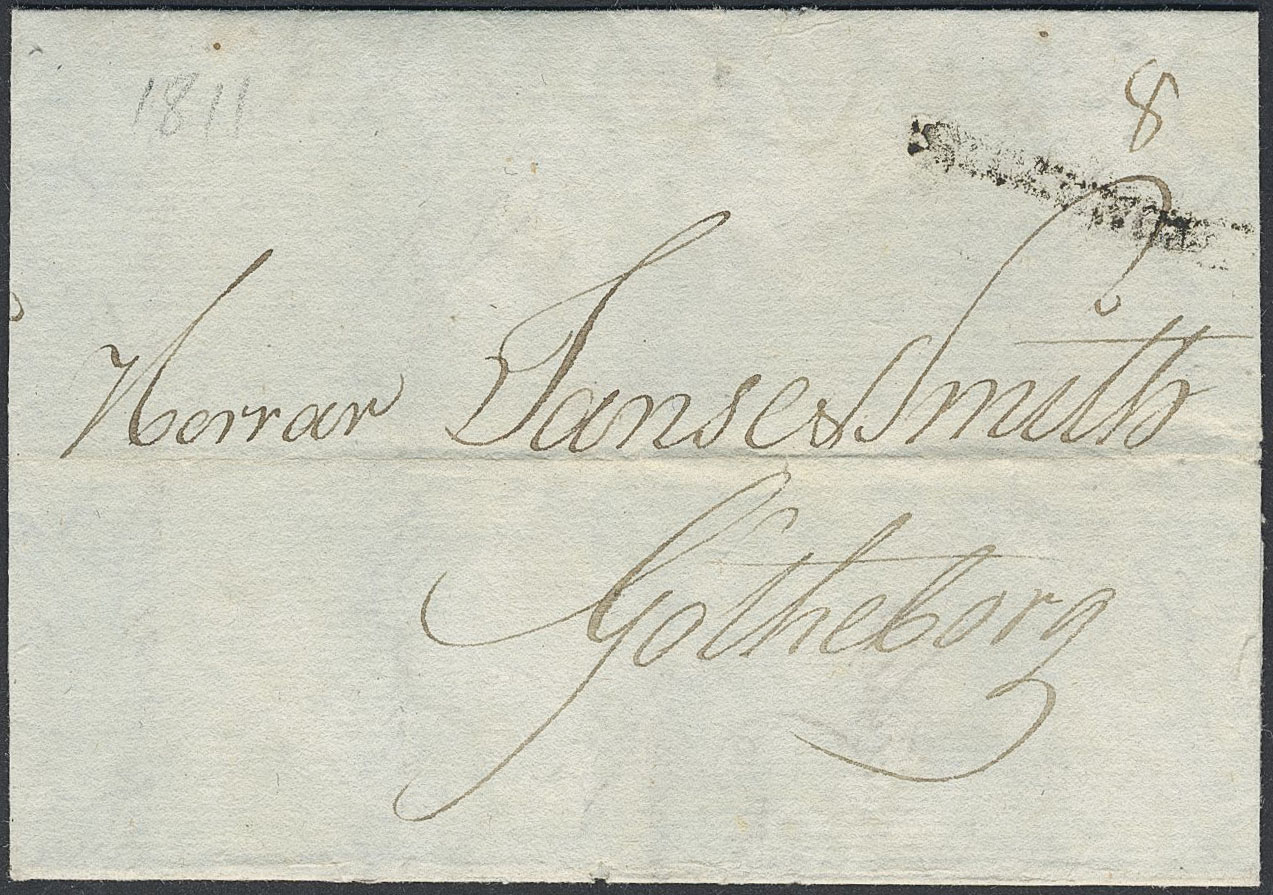 1811
8
Herrar Janse & Smith
Götheborg